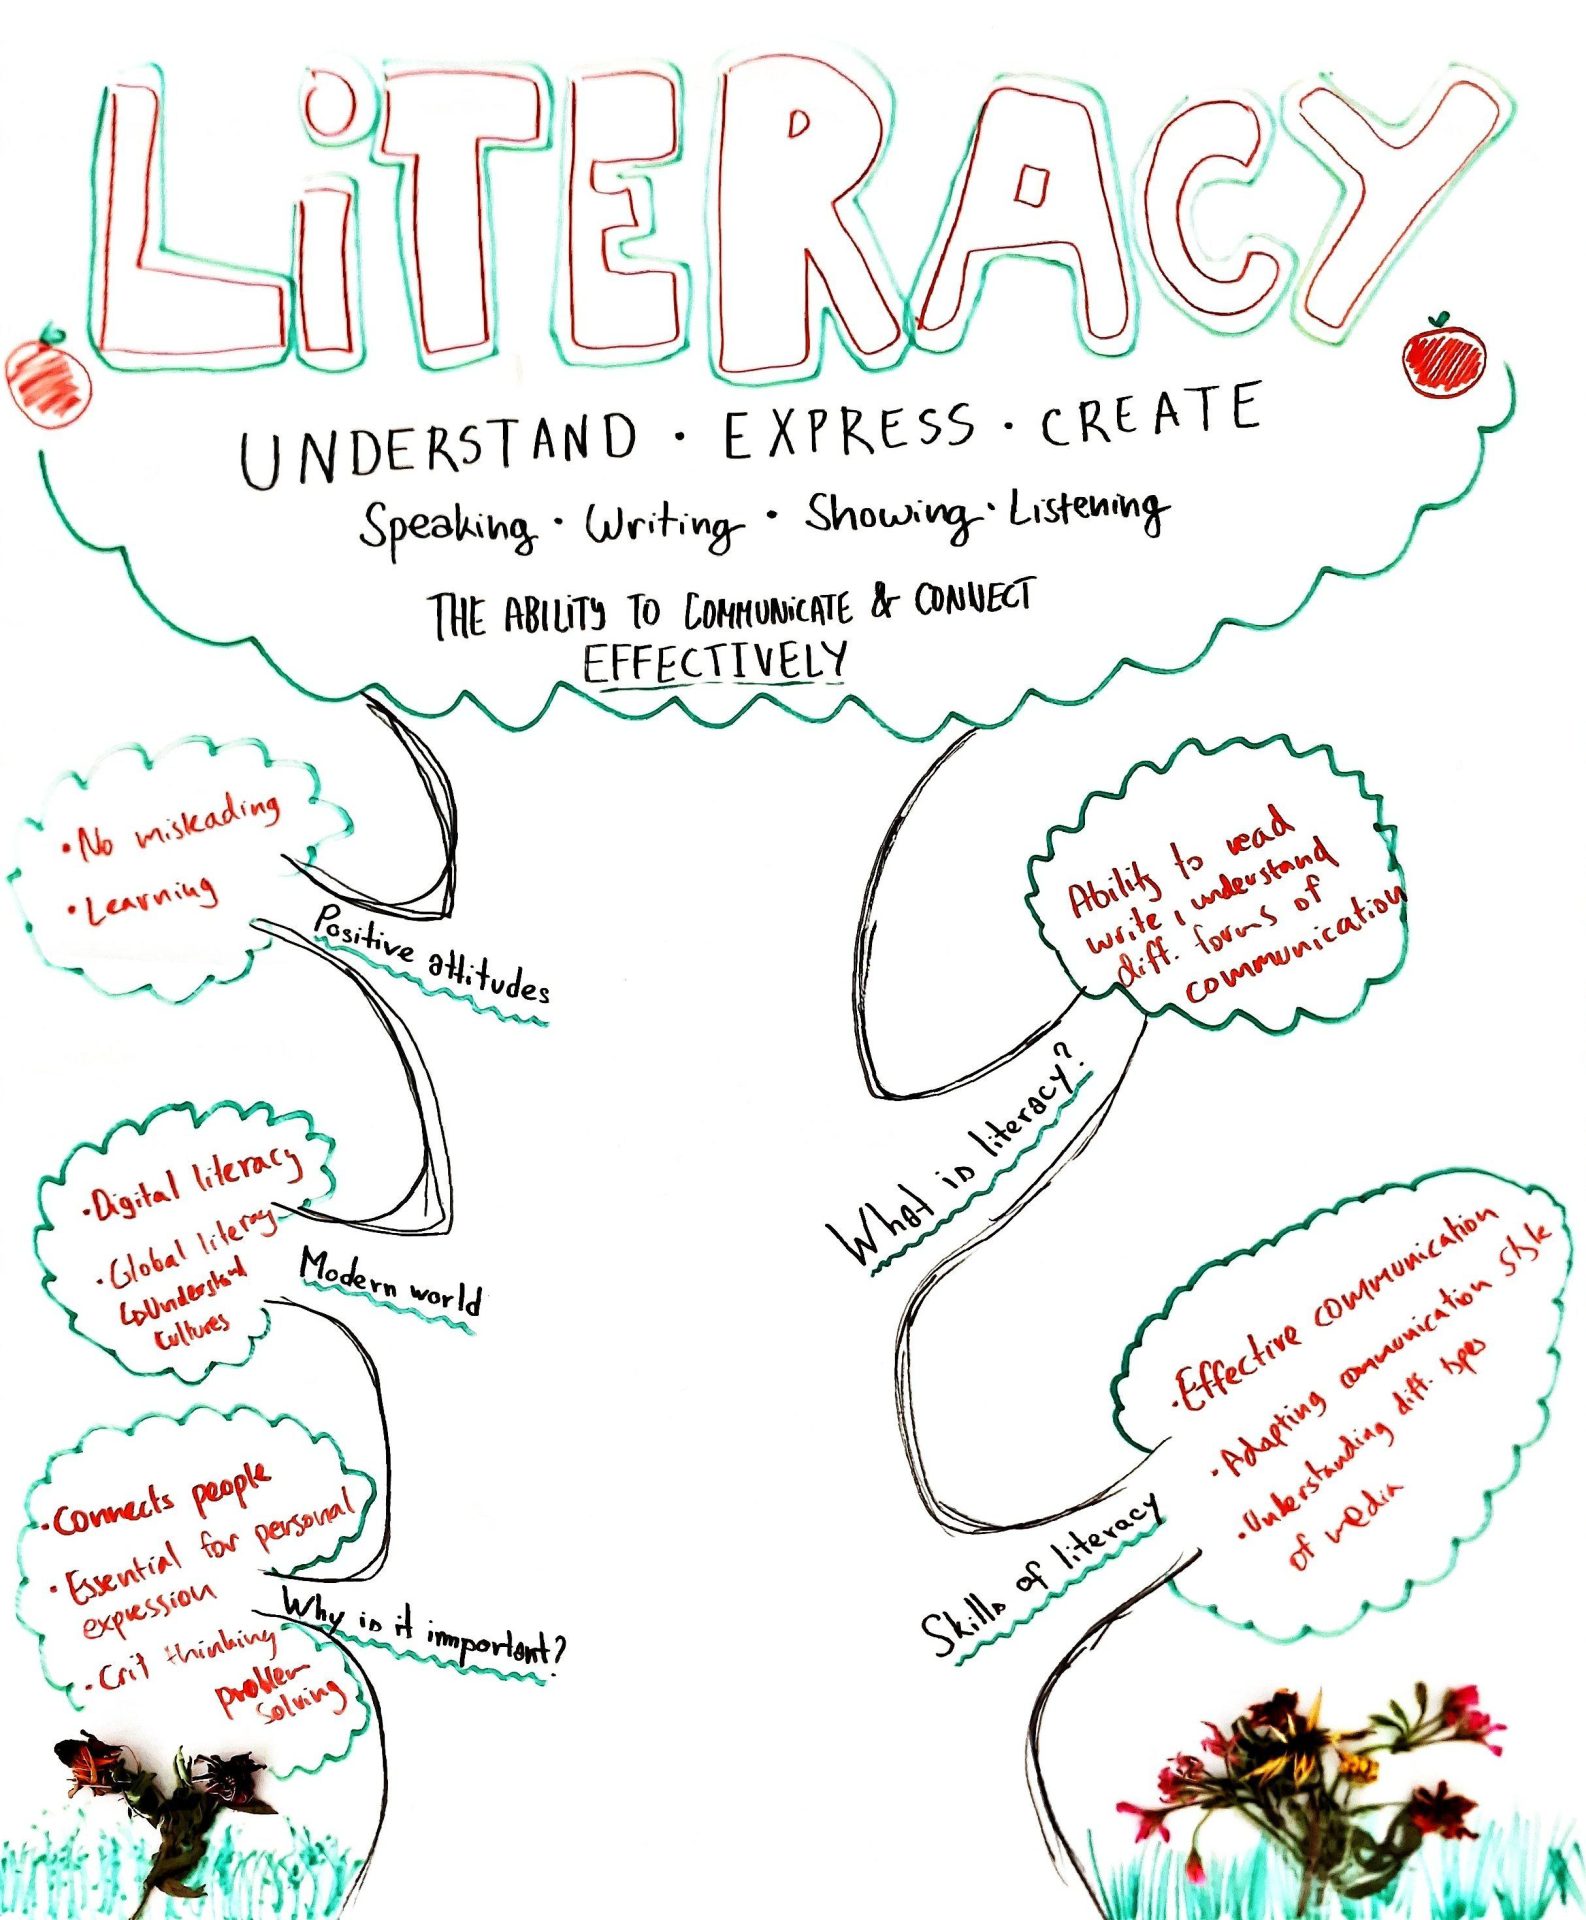 LiTERACY
UNDERSTAND · EXPRESS · CREATE
Speaking · Writing · Showing · Listening
THE ABILITY TO COMMUNICATE & CONNECT
EFFECTIVELY
· No misleading
· Learning
Positive attitudes
Ability to read
write, understand
diff. forms of
communication
What is literacy?
· Digital literacy
· Global literacy
↳ Understand
Cultures
Modern world
· Effective communication
· Adapting communication style
· Understanding diff. types
of media
Skills of literacy
· Connects people
· Essential for personal
expression
· Crit thinking
problem
solving
Why is it important?